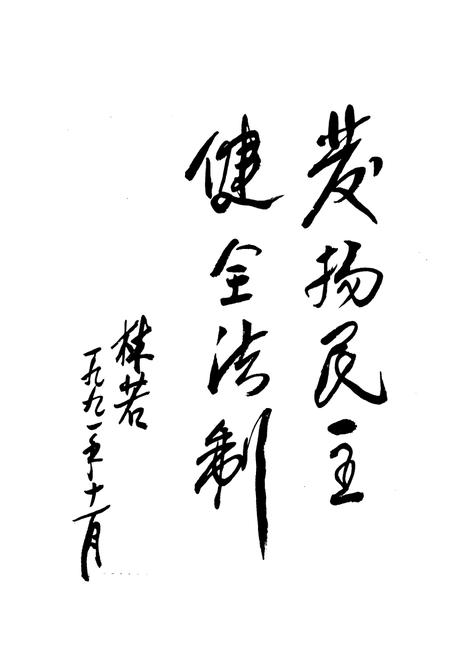 发扬民主
健全法制
林若
一九九一年十一月